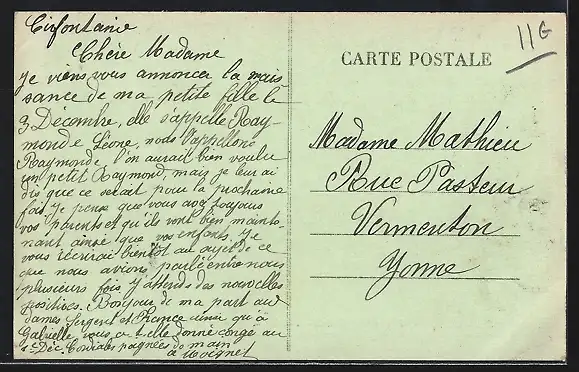 Cirfontaine
Chère Madame
Je viens vous annoncer la nais
sance de ma petite fille le
3 Decembre, elle s'appelle Ray
monde Léone, nous l'appellons
Raymonde, l'on aurait bien voulu
un petit Raymond, mais je leur ai
dis que ce serait pour la prochaine
fois, je pense que vous avez toujours
vos parents et qu'ils vont bien mainte-
nant ainsi que vos enfants. Je
vous récrirai bientôt au sujet de ce
que nous avions parlé entre nous
plusieurs fois j'attends des nouvelles
positives. Bonjour de ma part aux
dames Sergent et France ainsi qu'à
Gabrielle vous a t elle donné congé au
1er Dec. Cordiales poignées de main
11G
CARTE POSTALE
Madame Mathieu
Rue Pasteur
Vermenton
Yonne